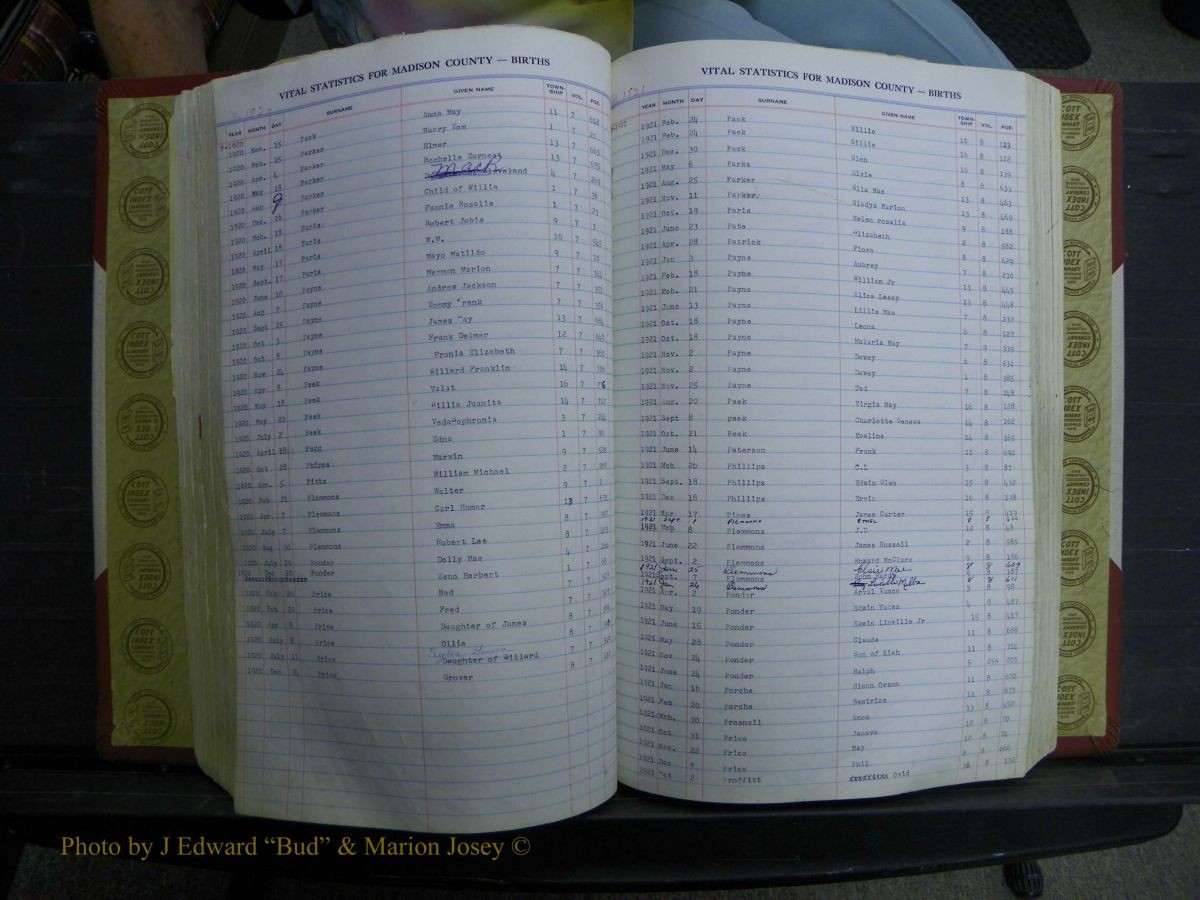 VITAL STATISTICS FOR MADISON COUNTY — BIRTHS
YEAR MONTH DAY SURNAME GIVEN NAME TOWN-SHIP VOL. PGE.
P-1920
1920 Nov. 15 Pack Anna May 11 7 612
1920 Mch. 15 Parker Harry Tom 1 7 21
1920 Apr. 4 Parker Elmer 13 7 663
1920 May 18 Parker Rochelle Earnest 13 7 675
1920 Aug 9 Parker Mack Cleveland 4 7 269
1920 Dec. 16 Parker Child of Willie 1 7 36
1920 Mch. 18 Paris Fannie Rosalie 1 7 23
1920 April 18 Paris Robert Jobie 9 7 3
1920 May 17 Paris W.M. 10 7
1920 Sept. 17 Paris Mayo Matildo 9 7
1920 June 10 Payne Hermon Marion 7 7
1920 Aug 7 Payne Andrew Jackson 7 7
1920 Sept 25 Payne Tommy Frank 7 7
1920 Oct 3 Payne James Ray 13 7
1920 Oct 8 Payne Frank Delmer 12 7
1920 Nov 24 Payne Fronia Elizabeth 7 7
1920 Apr 8 Peek Willard Franklin 14 7
1920 May 18 Peek Volat 16 7
1920 May 20 Peek Willis Juanita 14 7
1920 July 2 Peek VedaSophronia 3 7
1920 April 18 Pegg Edna 1 7
1920 Oct 28 Phipps Marvin 9 7
1920 Apr. 5 Pitts William Michael 2 7
1920 Feb 21 Plemmons Walter 9 7
1920 Apr. 7 Plemmons Carl Homer 13 7
1920 July 7 Plemmons Emma 8 7
1920 Aug 30 Plemmons Robert Lee 8 7
1920 July 24 Ponder Dolly Mae 4 7
1920 Dec 20 Ponder Zeno Herbert 1 7
1920 Feb 20 Price Ned 7 7
1920 Feb 20 Price Fred 7 7
1920 Apr 8 Price Daughter of James 8 7
1920 July 8 Price Ollie 8 7
1920 July 11 Price Daughter of Willard 7 7
1920 Dec 24 Price Grover 8 7
VITAL STATISTICS FOR MADISON COUNTY — BIRTHS
YEAR MONTH DAY SURNAME GIVEN NAME TOWN-SHIP VOL. PGE.
P-1921
1921 Feb. 24 Pack Willie 16 8 113
1921 Feb. 24 Pack Ollie 16 8 112
1921 Dec. 30 Pack Glen 16 8 139
1921 May 6 Parks Elsie 8 8 633
1921 Aug. 25 Parker Eila Mae 13 8 463
1921 Nov. 11 Parker Gladys Marion 13 8 469
1921 Oct. 19 Paris Helen rosalie 9 8 188
1921 June 23 Pate Elizabeth 2 8 582
1921 Apr. 28 Patrick Flora 8 8 629
1921 Jan 3 Payne Aubrey 7 8 230
1921 Feb. 18 Payne William Jr 13 8 445
1921 Mch. 21 Payne Alice Lesey 13 8 448
1921 June 13 Payne Lillie Mae 7 8 237
1921 Oct. 18 Payne Leona 6 8 527
1921 Oct. 18 Payne Malaris May 7 9 339
1921 Nov. 2 Payne Dewey 6 8 531
1921 Nov. 2 Payne Dewey 1 8 385
1921 Nov. 25 Payne Ted 7 8 248
1921 Aug. 20 Peek Virgie May 16 8 128
1921 Sept 8 peek Charlotte Geneva 14 8 162
1921 Oct. 21 Peek Evaline 14 8 165
1921 June 14 Peterson Frank 11 8 692
1921 Mch 26 Phillips C.L 3 8 87
1921 Sept. 18 Phillips Edwin Glen 15 8 432
1921 Dec 18 Phillips Ervin 16 8 138
1921 Apr 17 Pipes James Carter 15 8 419
1921 Sept. 1 Plemmons Ethel 8 8
1921 Mch 8 Plemmons J.D 12 8 48
1921 June 22 Plemmons James Russell 2 8 585
1921 Sept. 2 Plemmons Howard McClure 9 8 186
1921 Jan 25 Plemmons Elsie Mae 8 8 609
1921 Sept. 7 Plemmons John Hardy 9 8 187
1921 Jan 24 Plemmons Lucille Melba 8 8 611
1921 Apr. 2 Ponder Arval Vance 3 8 90
1921 May 19 Ponder Edwin Yates 4 8 487
1921 June 15 Ponder Edwin Linville Jr 15 8 417
1921 May 28 Ponder Claude 11 8 688
1921 Nov 24 Ponder Son of Kish 11 8 714
1921 June 24 Ponder Ralph 5 254 203
1921 Jan 16 Porche Glenn Orson 11 8 670
1921 Feb 20 porche Beatrice 11 8 673
1921 Mch. 30 Presnell Amos 13 8 450
1921 Oct 31 Price Janeva 12 8 70
1921 Nov. 22 Price May 12 8 74
1921 Dec 7 Price Phil 8 8 666
1921 Oct 2 Proffitt Ovid 16 8 132
COTT INDEX COMPANY
Photo by J Edward “Bud” & Marion Josey ©